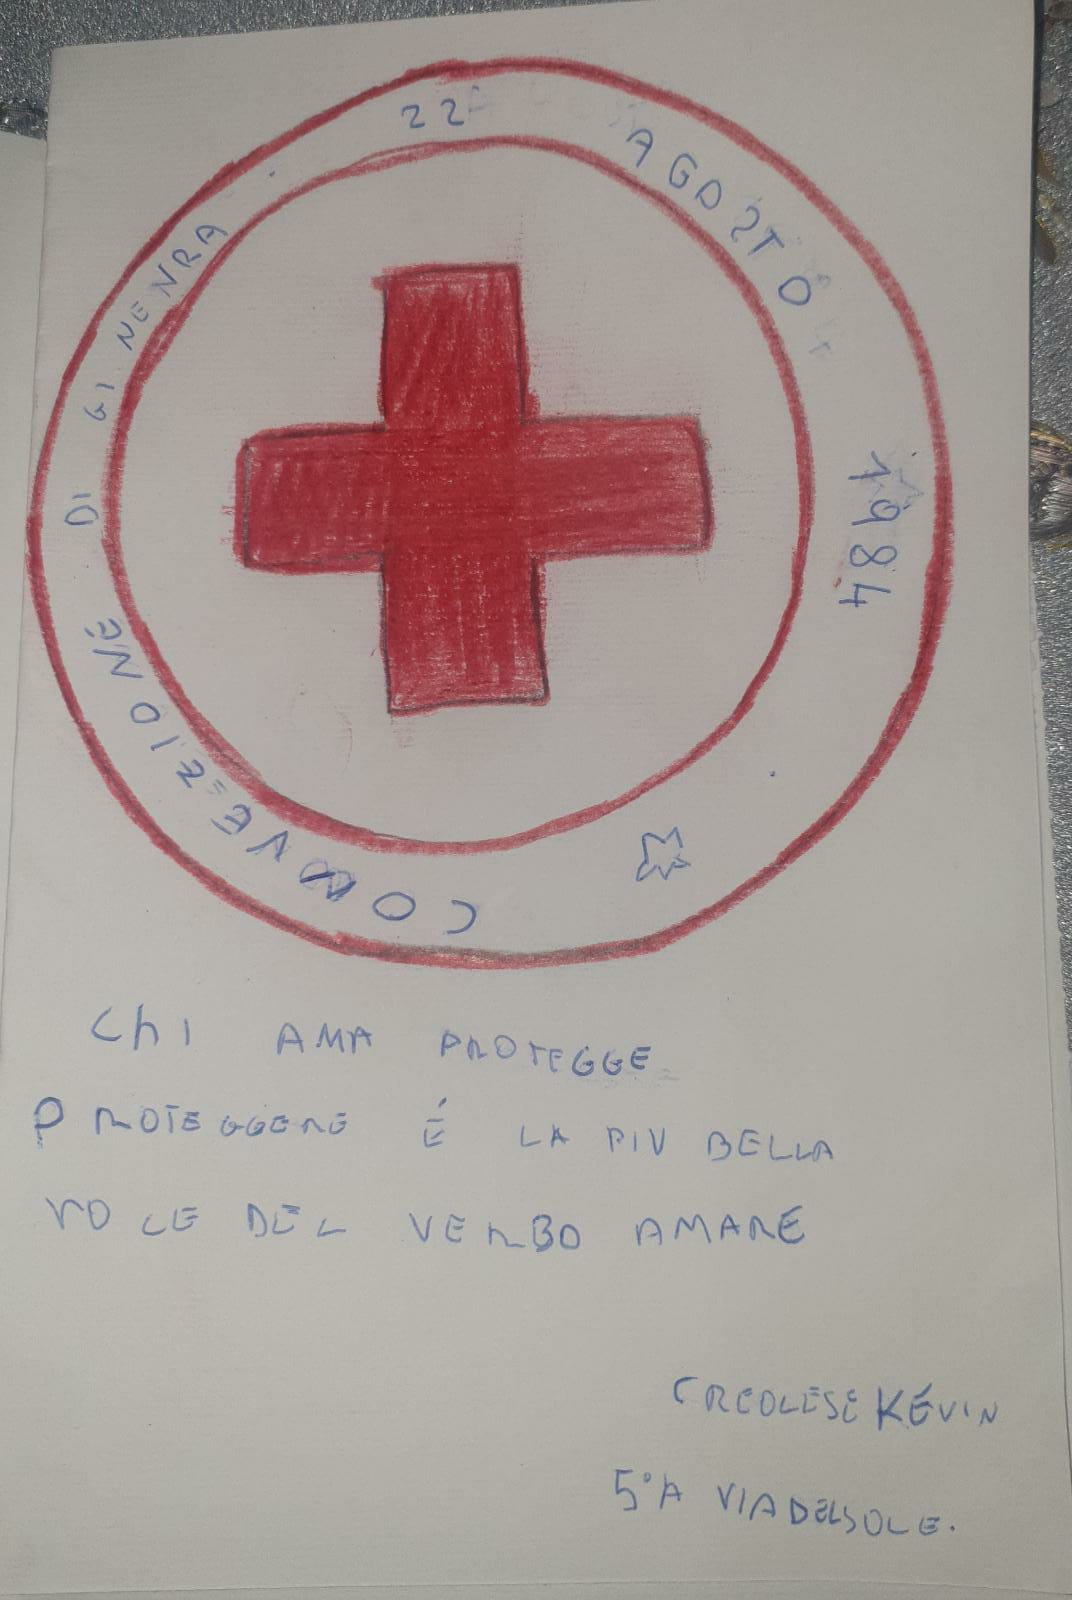 CONVEZIONÉ DI GINENRA . 22 AGOSTO 1984
ChI AMA PROTEGGE
PROTEGGERE É LA PIV BELLA
VOCE DEL VERBO AMARE
CREOLESE KÉVIN
5°A VIA DEL SOLE.